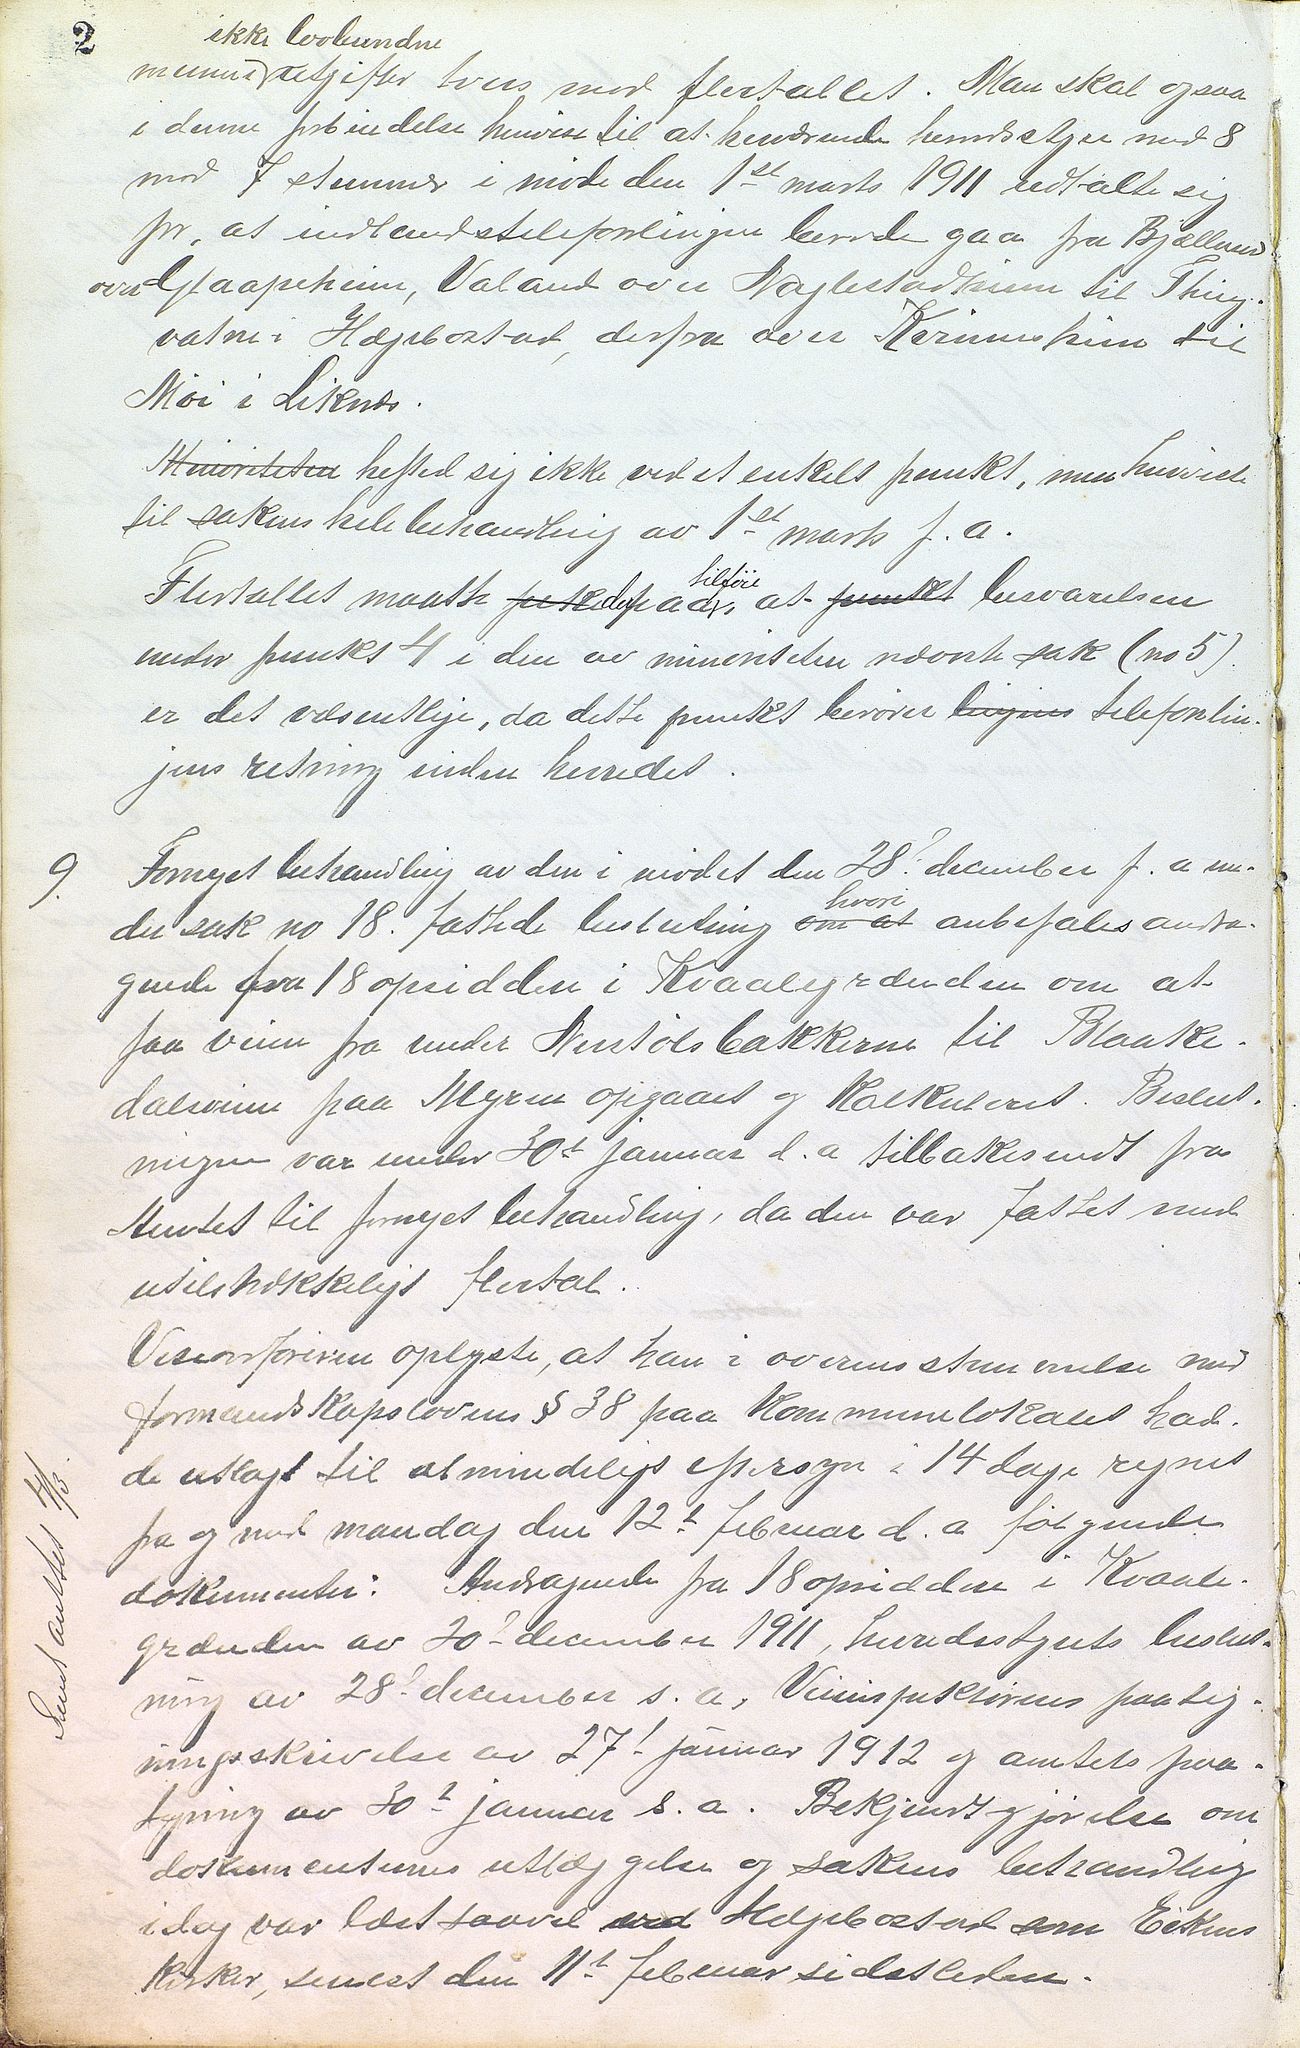 2
ikke lovbundne
munes utgifter tvers mod flertallet. Man skal ogsaa
i denne forbindelse henvise til at herværende herredsstyre med 8
mod 7 stemmer i møde den 1st marts 1911 uttalte sig
for, at indlandstelefonlinjen burde gaa fra Bjelland
over Glaapeheim, Valand over Naglestadheim til Thing-
vatne i Hægebostad, derfra over Kvinnesheim til
Möi i Liknes.
Minoriteten hefted sig ikke ved et enkelt punkt, men henviste
til sakens hele behandling av 1st marts f. a.
Flertallet maatte peke derpaa tilföie at punkt besvarelsen
under punkt 4 i den av minoriteten nævnte sak (no 5)
er det væsentlige, da dette punkt berører linjens telefonlin-
jens retning inden herredet.
9. Fornyet behandling av den i mödet den 28d december f. a un-
der sak no 18 fattede beslutning om at hvori anbefales andra-
gende fra 18 opsiddere i Kvaalegrænden om at
faa veien fra under Nustölsbakkerne til Blaake-
dalsveien paa Myren opgaaet og kalkuleret. Beslut-
ningen var under 30t januar d. a tilbakesendt fra
Amtet til fornyet behandling, da den var fattet med
utilstrækkeligt flertal.
Viseordföreren oplyste, at han i overensstemmelse med
formandskapslovens § 38 paa kommunelokalet had-
de utlagt til almindeligt eftersyn i 14 dage regnet
fra og med mandag den 12t februar d. a følgende
dokumenter: Andragende fra 18 opsiddere i Kvaale-
grænden av 20d december 1911, herredsstyrets beslut-
ning av 28d december s. a, Veiinspektörens paateg-
ningsskrivelse av 27d januar 1912 og amtets paa-
tegning av 30t januar s. a. Bekjendtgjørelse om
dokumenternes utlæggelse og sakens behandling
idag var læst saavel ved Hægebostad som Eikens
kirker, senest den 11t februar sidstleden.
Sendt amtet 4/3.